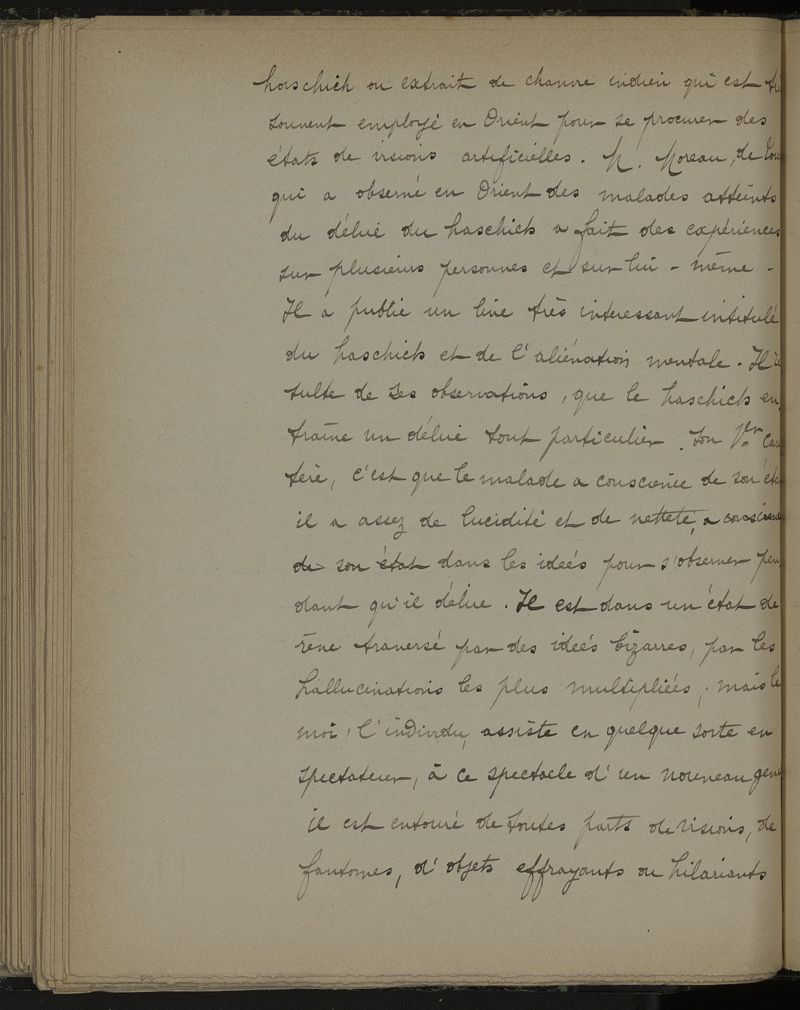 haschich ou extrait de chanvre indien qui est trè
souvent employé en Orient pour se procurer des
états de visions artificielles. M. Moreau, de Tou
qui a observé en Orient des malades atteints
du délire du haschich a fait des expériences
sur plusieurs personnes et sur lui-même.
Il a publié un livre très intéressant intitulé
du haschich et de l'aliénation mentale. Il ré
sulte de ses observations, que le haschich en
traîne un délire tout particulier. Son 1er carac
tère, c'est que le malade a conscience de son éta
il a assez de lucidité et de netteté, a conscience
de son état dans les idées pour s'observer pen
dant qu'il délire. Il est dans un état de
rêve traversé par des idées bizarres, par les
hallucinations les plus multipliées; mais le
moi, l'individu, assiste en quelque sorte en
spectateur, à ce spectacle d'un nouveau genr
il est entouré de toutes parts de visions, de
fantomes, d'objets effrayants ou hilariants